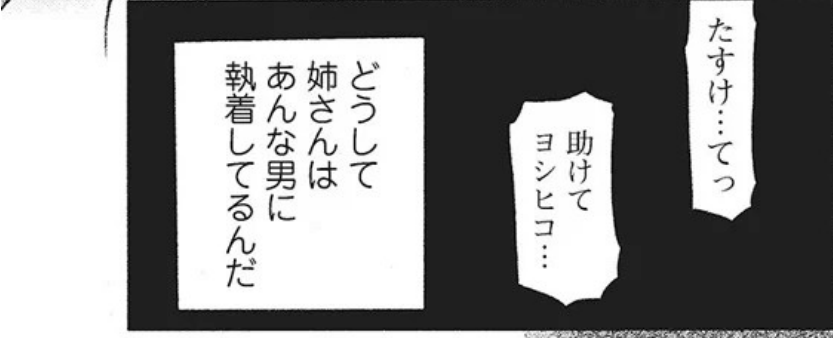 たすけ…てっ
助けて
ヨシヒコ…
どうして
姉さんは
あんな男に
執着してるんだ